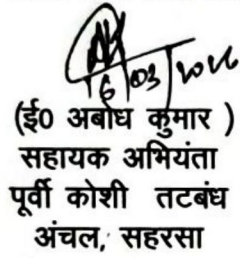 6/03/2026
(ई0 अबोध कुमार )
सहायक अभियंता
पूर्वी कोशी तटबंध
अंचल, सहरसा